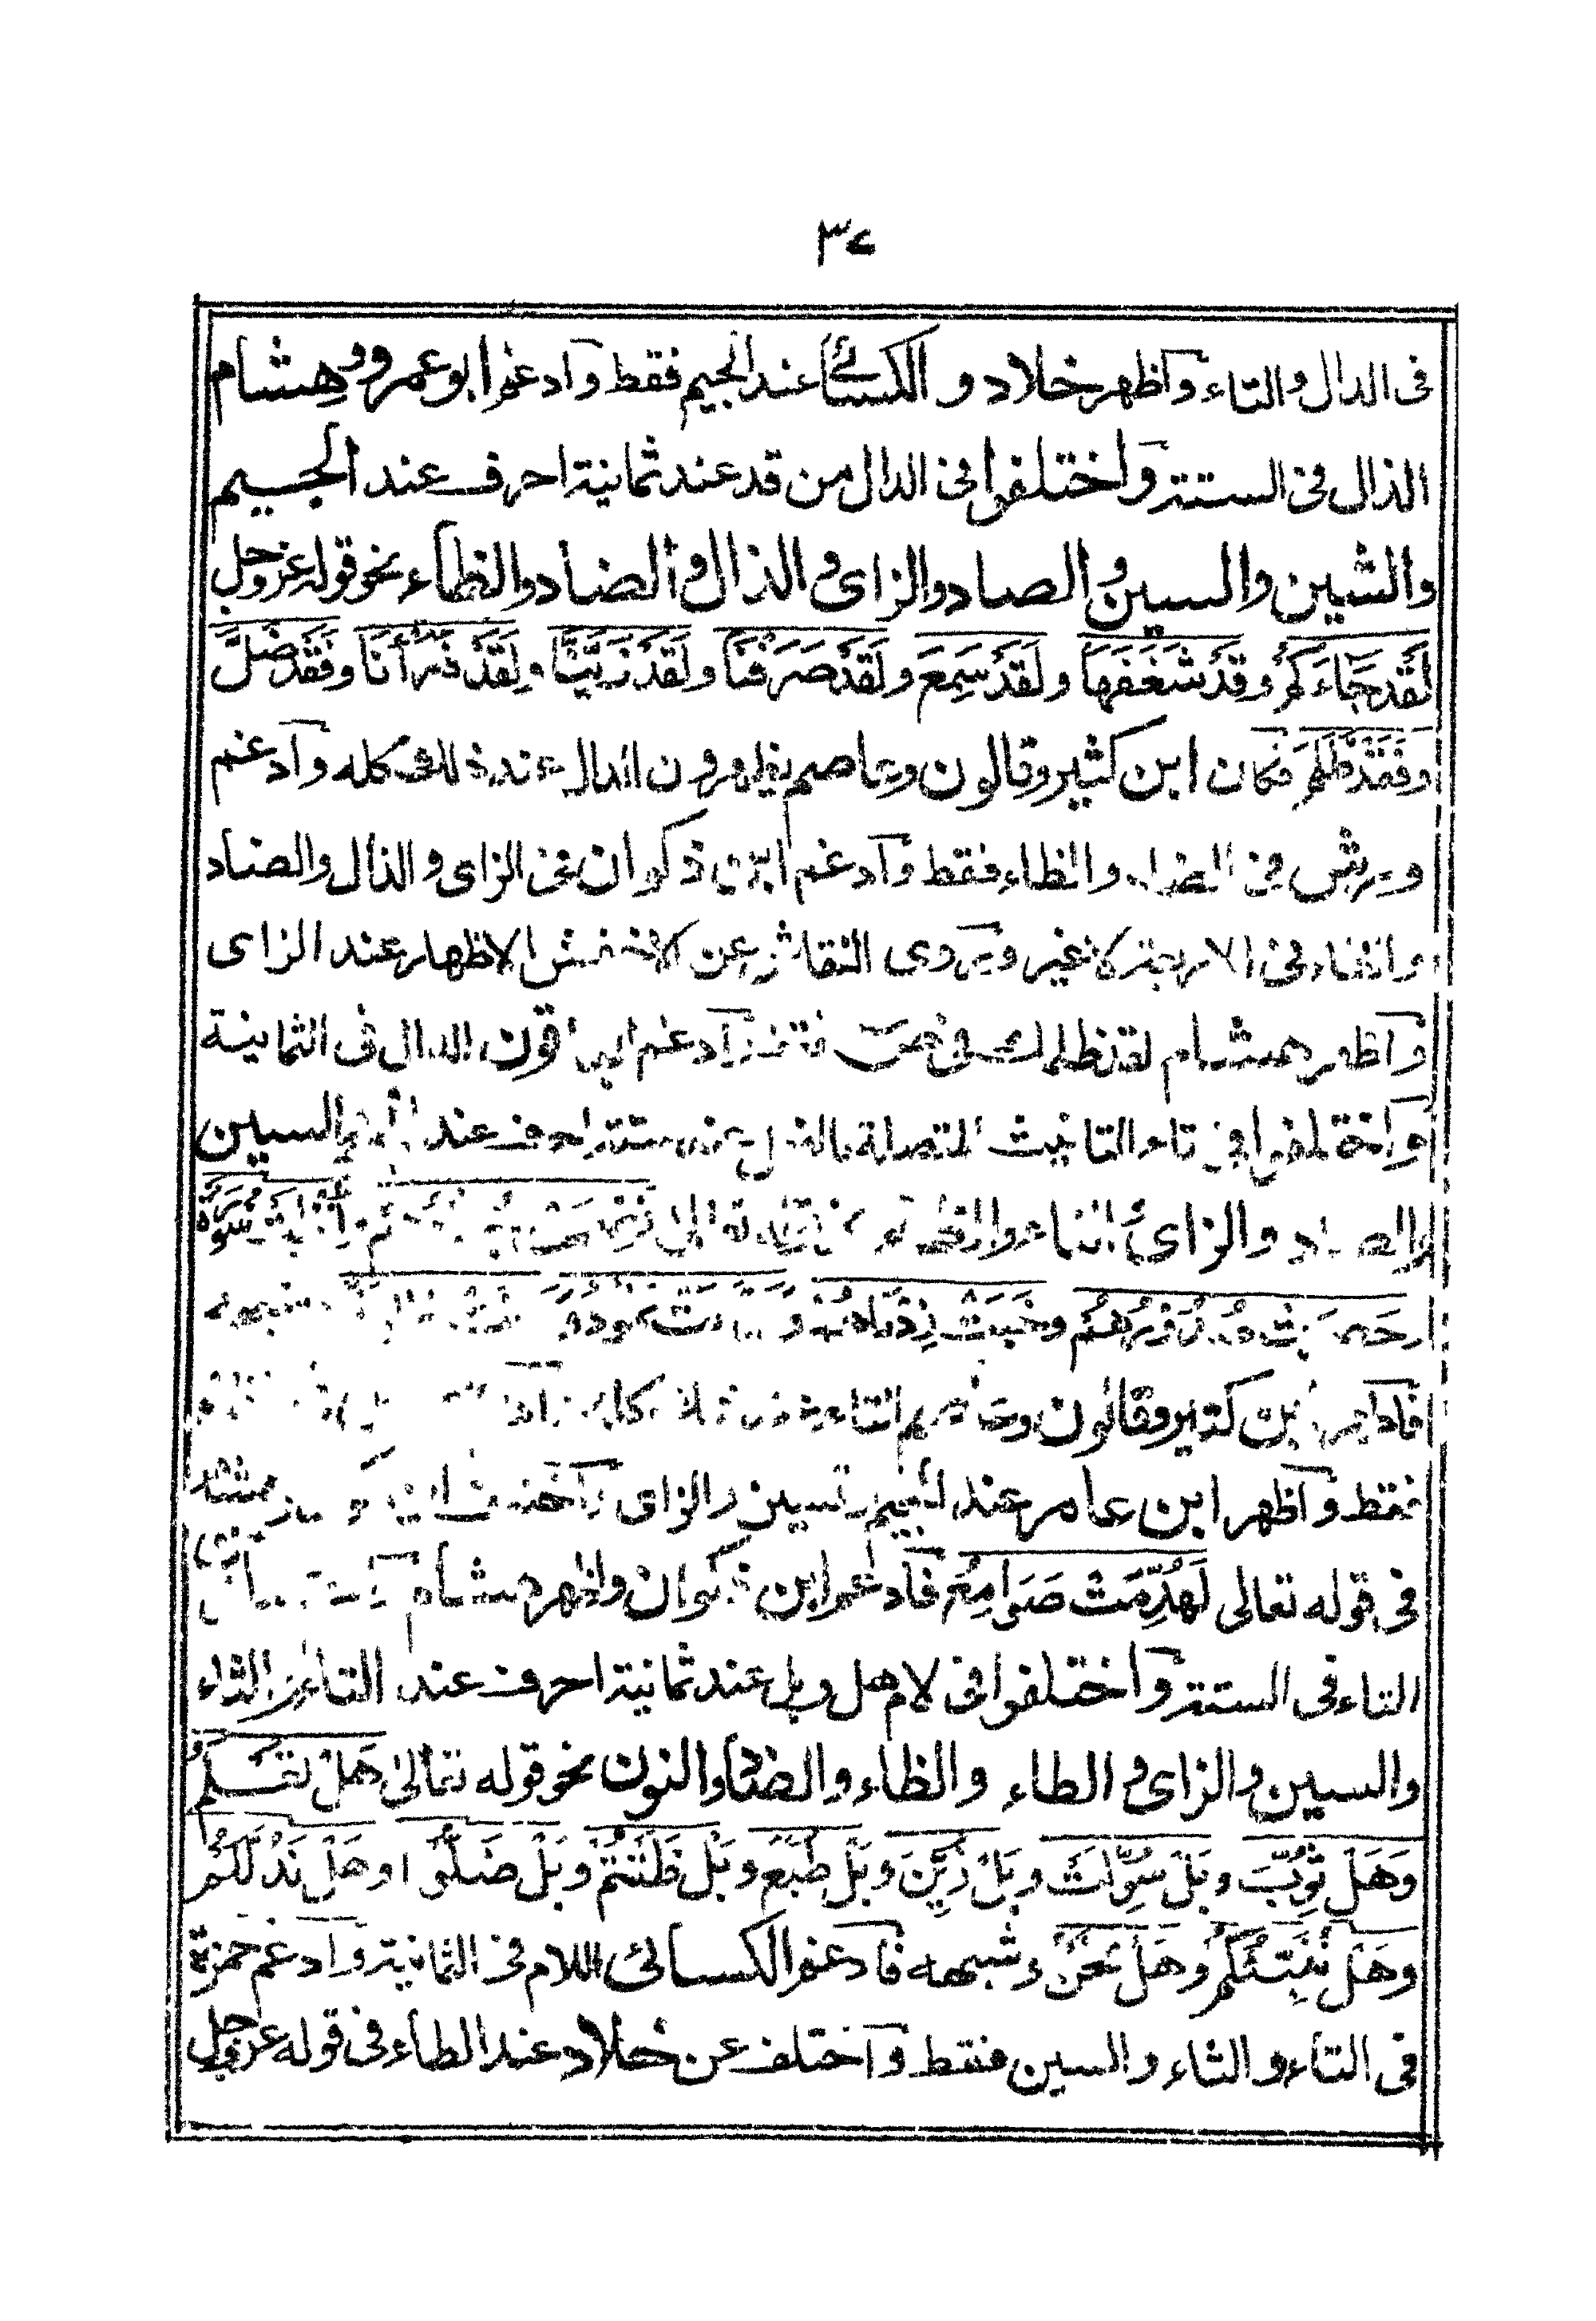 ٣٤
فى الدال والتاء وآظهر خلاد و الكسائے عند الجيم فقط وآدغم ابو عمرو وهشام
الذال فى الستة وآختلفوا فى الدال من قد عند ثمانية احرف عند الجيم
والشين والسين والصاد والزاى و الذال والضاد والظاء نحو قوله عزوجل
لَقَدْ جَاءَكُمْ وقَدْ شَغَفَهَا ولَقَدْ سَمِعَ ولَقَدْ صَرَفْنَا ولَقَدْ زَيَّنَّا ولَقَدْ ذَرَأْنَا وفَقَدْ ضَلَّ
وفَقَدْ ظَلَمَ فكان ابن كثير وقالون وعاصم يظهرون الدال عند ذلك كله وآدغم
ورش فى الضاد والظاء فقط وآدغم ابن ذكوان فى الزاى و الذال والضاد
والظاء فى الاربعة لا غير ويروى النقاش عن الاخفش الاظهار عند الزاى
وآظهر هشام لقد ظلمك فى ص فقط وآدغم الباقون الدال فى الثمانية
وآختلفوا فى تاء التانيث المتصلة بالفعل عند ستة احرف عند الجيم والسين
والصاد والزاى والثاء والظاء نحو قوله تعالى نَضِجَتْ جُلُودُهُمْ و سُورَةٌ
وحَصِرَتْ صُدُورُهُمْ وخَبَتْ زِدْنَاهُمْ و ثَمُودُ وشبهه
فآظهر ابن كثير وقالون وعاصم التاء عند ذلك كله وآدغم
فقط وآظهر ابن عامر عند الجيم والسين والزاى وآختلف
فى قوله تعالى لَهُدِّمَتْ صَوَامِعُ فآدغم ابن ذكوان واظهر هشام
التاء فى الستة وآختلفوا فى لام هل وبل عند ثمانية احرف عند التاء والثاء
والسين والزاى و الطاء والظاء والضاد والنون نحو قوله تعالىٰ هَلْ تَعْلَمُ
وَهَلْ ثُوِّبَ وبَلْ سَوَّلَتْ وبَلْ زُيِّنَ وبَلْ طَبَعَ وبَلْ ظَنَنْتُمْ وبَلْ ضَلُّوا وهَلْ نَدُلُّكُمْ
وهَلْ نُنَبِّئُكُمْ وهَلْ نَحْنُ وشبهه فآدغم الكسائى اللام فى الثمانية وآدغم حمزة
فى التاء والثاء والسين فقط وآختلف عن خلاد عند الطاء فى قوله عزوجل